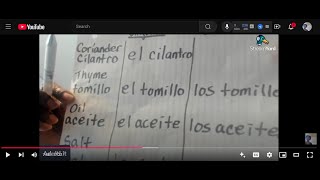 YouTube
Search
Coriander
Cilantro el cilantro
Thyme
tomillo el tomillo los tomillo
Oil
aceite el aceite los aceite
Salt